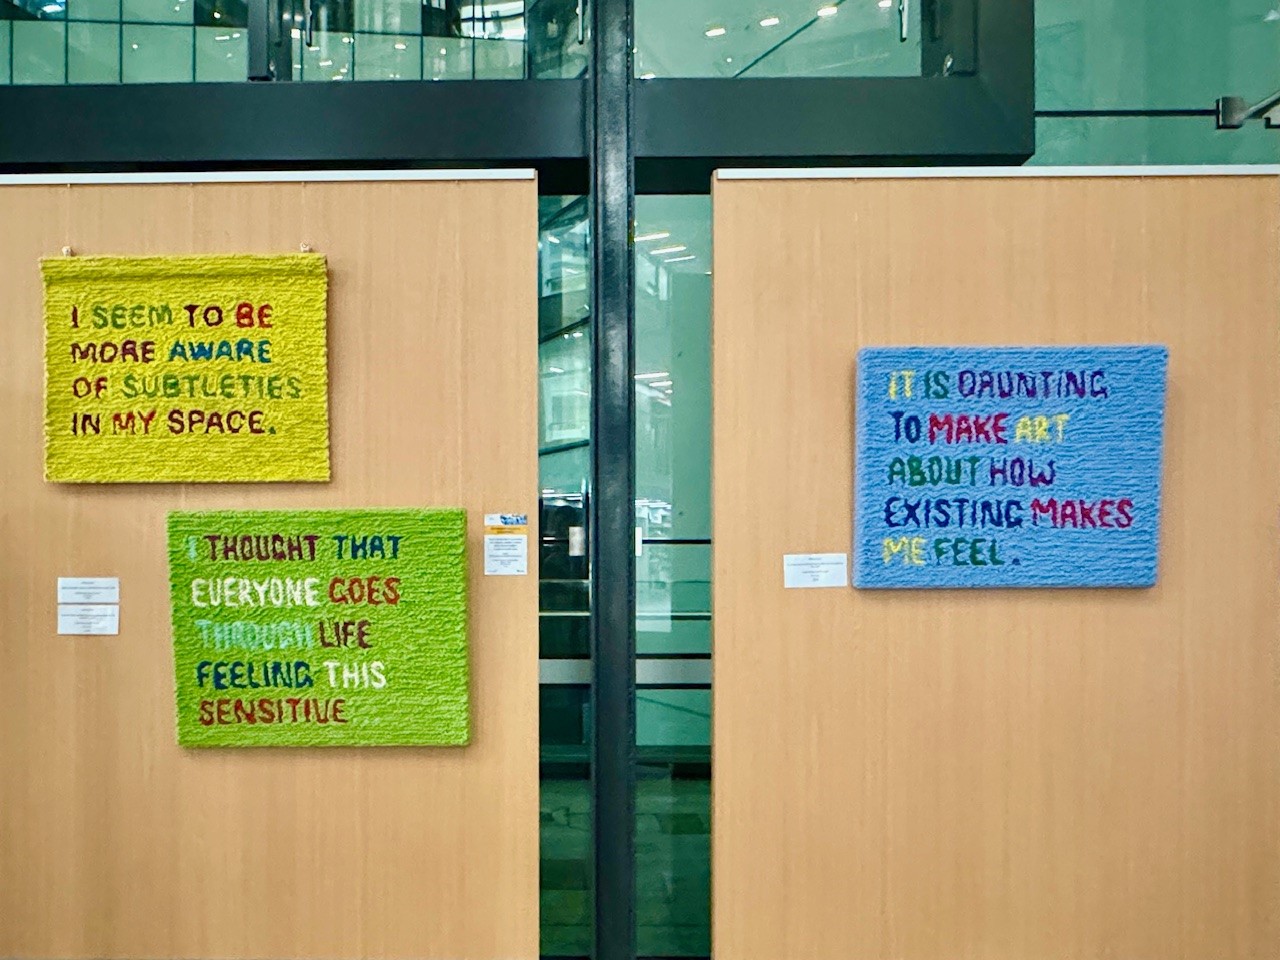 I SEEM TO BE
MORE AWARE
OF SUBTLETIES
IN MY SPACE.
I THOUGHT THAT
EVERYONE GOES
THROUGH LIFE
FEELING THIS
SENSITIVE
IT IS DAUNTING
TO MAKE ART
ABOUT HOW
EXISTING MAKES
ME FEEL.